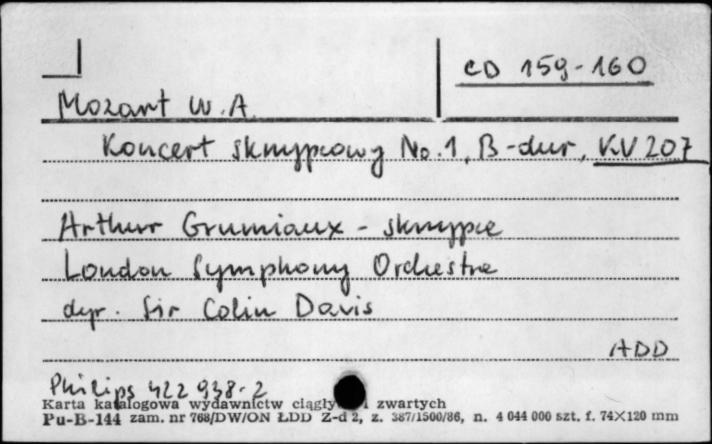 CD 159-160
Mozart W.A.
Koncert skrzypcowy No.1, B-dur, KV 207
Arthur Grumiaux - skrzypce
London Symphony Orchestra
dyr. Sir Colin Davis
ADD
Philips 422 938-2
Karta katalogowa wydawnictw ciągły i zwartych
Pu-B-144 zam. nr 768/DW/ON ŁDD Z-d 2, z. 387/1500/86, n. 4 044 000 szt. f. 74×120 mm